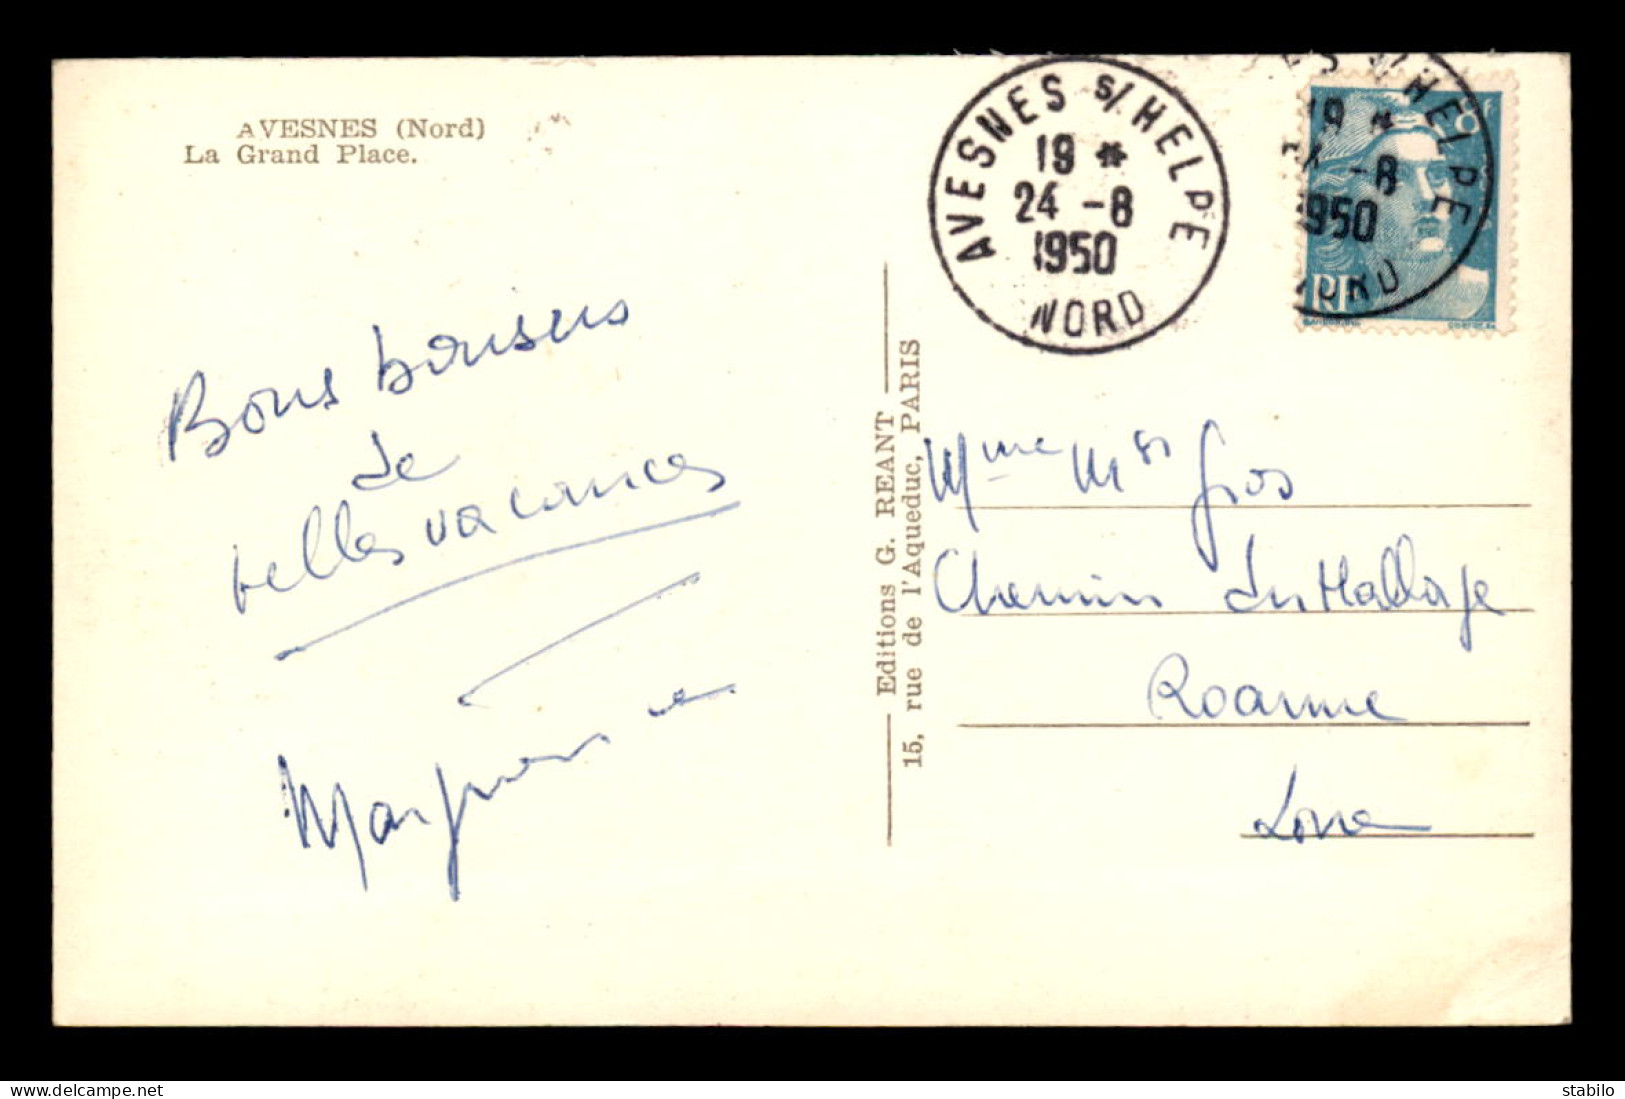 AVESNES (Nord)
La Grand Place.
Bons baisers
de
belles vacances
Marguerite
Editions G. REANT
15, rue de l'Aqueduc, PARIS
AVESNES S/ HELPE
19 *
24 -8
1950
NORD
ES S/ HELPE
19 *
4 -8
1950
NORD
8F
RF
Mme Gros
Chemin du
Roanne
Loire
delcampe.net
stabilo